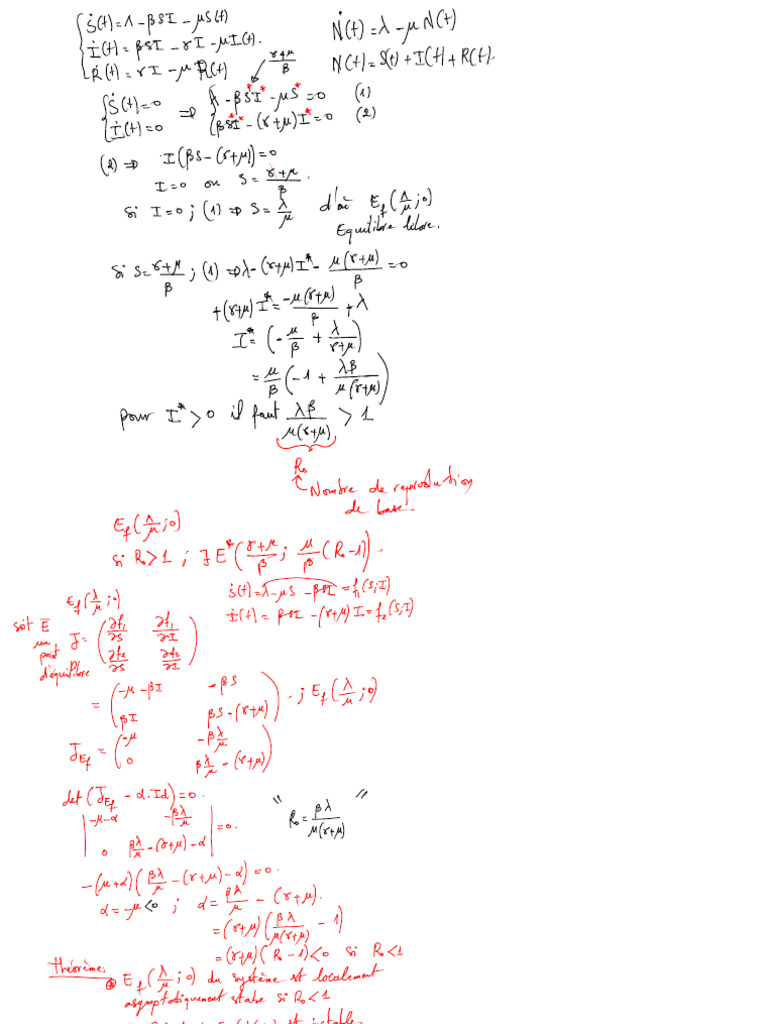 Ṡ(t) = Λ - βSI - μS(t)
İ(t) = βSI - γI - μI(t).
Ṙ(t) = γI - μR(t)
Ṅ(t) = λ - μN(t)
N(t) = S(t) + I(t) + R(t).
(γ+μ)/β
{Ṡ(t) = 0 ⇒ {Λ - βS*I* - μS* = 0 (1)
{İ(t) = 0 {βS*I* - (γ+μ)I* = 0 (2)
(2) ⇒ I(βS - (γ+μ)) = 0
I = 0 ou S = (γ+μ)/β.
si I = 0 ; (1) ⇒ S = λ/μ d'où E_f(Λ/μ ; 0)
Equilibre libre.
si S = (γ+μ)/β ; (1) ⇒ λ - (γ+μ)I* - μ(γ+μ)/β = 0
+(γ+μ)I* = -μ(γ+μ)/β + λ
I* = (-μ/β + λ/(γ+μ))
= μ/β (-1 + λβ/(μ(γ+μ)))
pour I* > 0 il faut λβ/(μ(γ+μ)) > 1
R₀
Nombre de reproduction
de base.
E_f(Λ/μ ; 0)
si R₀ > 1 ; ∃ E*((γ+μ)/β ; μ/β (R₀ - 1)).
Ṡ(t) = λ - μS - βSI = f₁(S,I)
İ(t) = βSI - (γ+μ)I = f₂(S,I)
E_f(λ/μ ; 0)
soit E
un
point
d'équilibre
J = (∂f₁/∂S ∂f₁/∂I
∂f₂/∂S ∂f₂/∂I)
= (-μ-βI -βS
βI βS-(γ+μ)) . ; E_f(λ/μ ; 0)
J_Ef = (-μ -βλ/μ
0 βλ/μ - (γ+μ))
det(J_Ef - α.Id) = 0.
|-μ-α -βλ/μ
0 βλ/μ - (γ+μ) - α| = 0.
" R₀ = βλ/(μ(γ+μ)) "
-(μ+α)(βλ/μ - (γ+μ) - α) = 0.
α = -μ < 0 ; α = βλ/μ - (γ+μ).
= (γ+μ)(βλ/(μ(γ+μ)) - 1)
= (γ+μ)(R - 1) < 0 si R₀ < 1
théorème.
E_f(λ/μ ; 0) du système est localement
asymptotiquement stabe si R₀ < 1